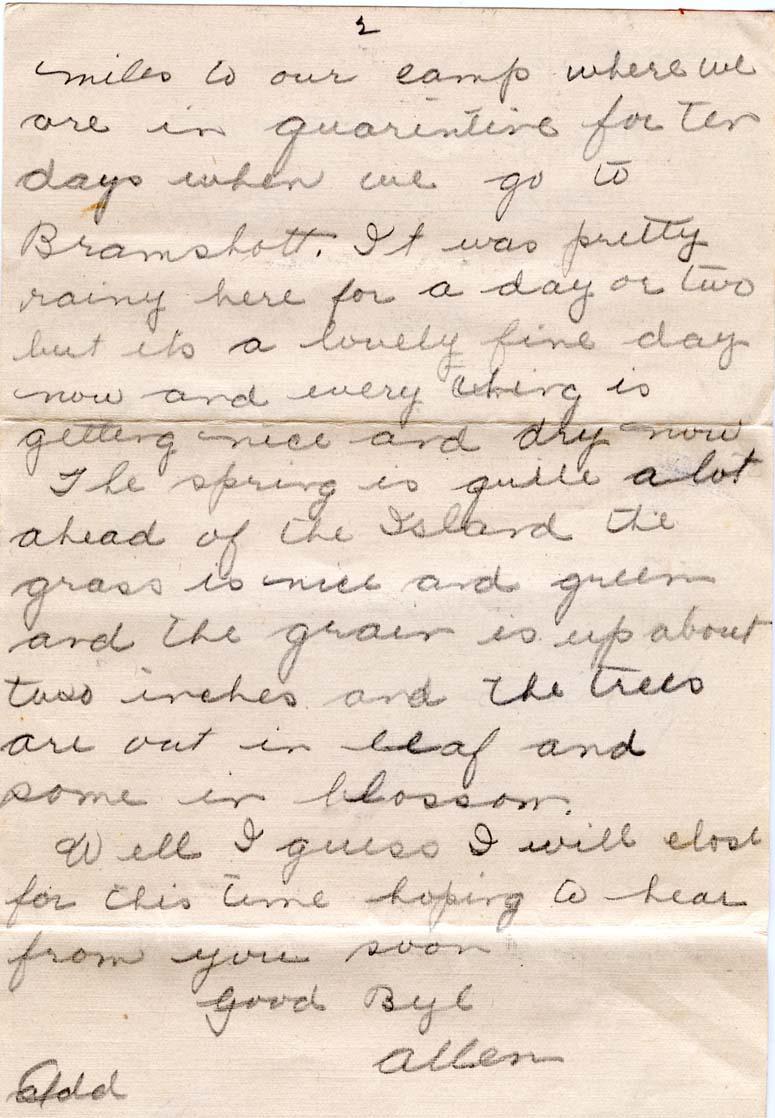 2
miles to our camp where we
are in quarintine for ten
days when we go to
Bramshott. It was pretty
rainy here for a day or two
but its a lovely fine day
now and every thing is
getting nice and dry now
The spring is quite a lot
ahead of the Island the
grass is nice and green
and the grain is up about
two inches and the trees
are out in leaf and
some in blossom.
Well I guess I will close
for this time hoping to hear
from you soon
Good Bye
Allen
Add